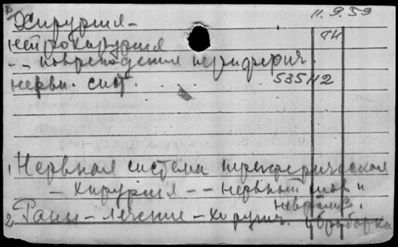 Хирургия - 11.9.59
нейрохирургия 44
-- повреждения периферич.
нервн. сист. 53512
1. Нервная система периферическая
- хирургия -- нервный
2. Раны - лечение - хирургич. обработка